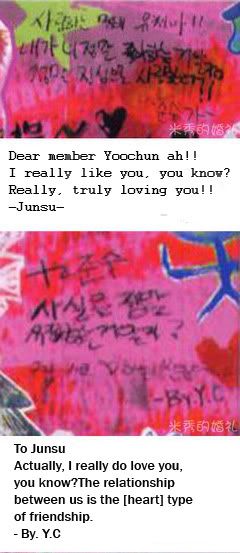 사랑하는 유천아!!
내가 너 정말
정말 진심으로
米秀的婚礼
Dear member Yoochun ah!!
I really like you, you know?
Really, truly loving you!!
—Junsu—
To 준수
사실은 정말
-By.Y.C
米秀的婚礼
To Junsu
Actually, I really do love you,
you know?The relationship
between us is the [heart] type
of friendship.
- By. Y.C